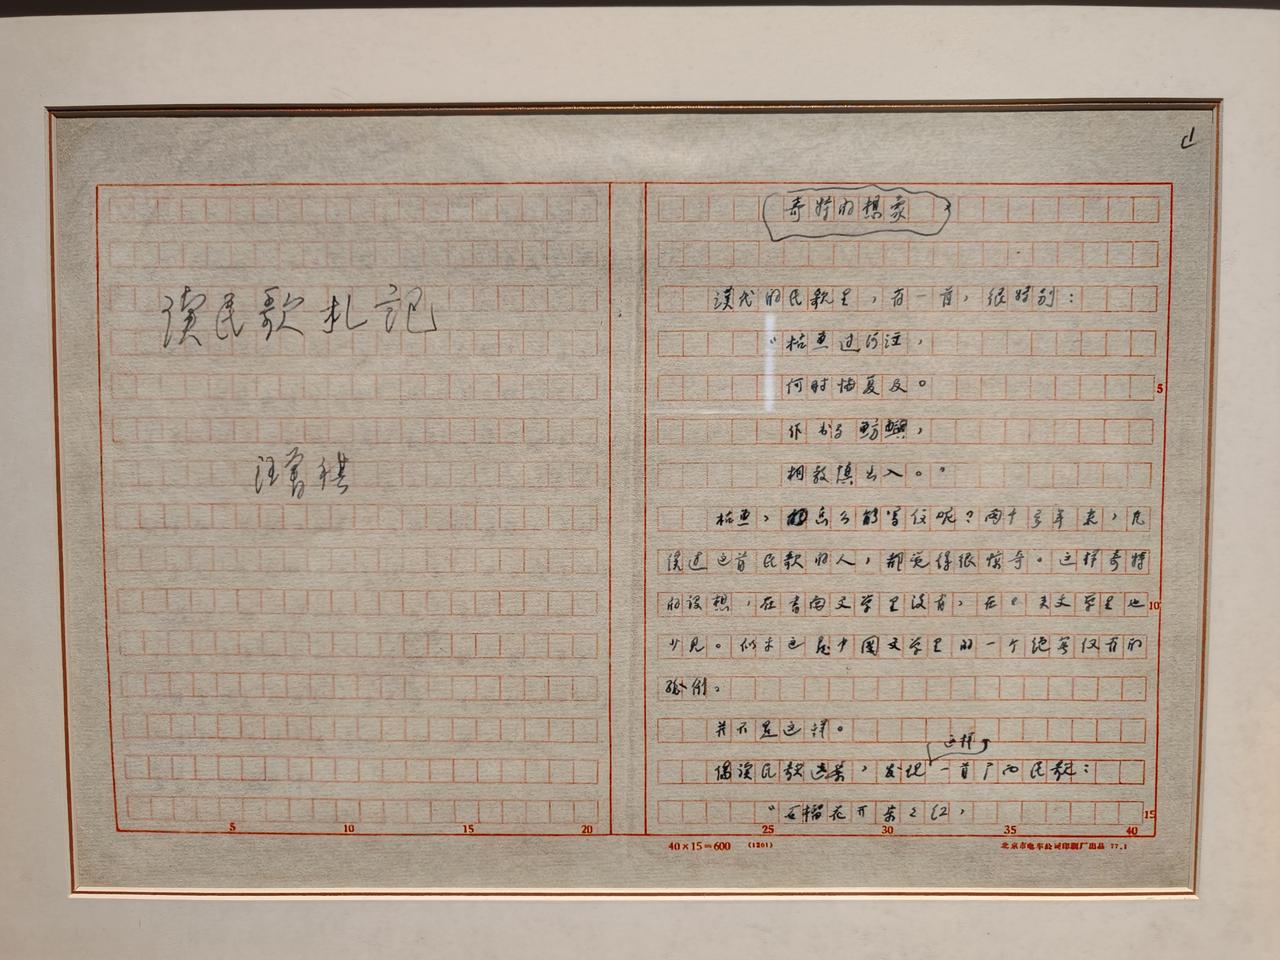 读民歌札记
汪曾祺
1
奇特的想象
汉代的民歌里，有一首，很特别：
“枯鱼过河泣，
何时悔复及。
作书与鲂鱮，
相教慎出入。”
枯鱼，怎么能写信呢？两千多年来，凡
读过这首民歌的人，都觉得很惊奇。这样奇特
的设想，在书面文学里没有，在口头文学里也
少见。似乎这是中国文学里的一个绝无仅有的
孤例。
并不是这样。
这样
偶读民歌选集，发现一首广西民歌：
“石榴花开朵朵红，
5
10
15
5 10 15 20 25 30 35 40
40×15=600 (1201) 北京市电车公司印刷厂出品 77.1